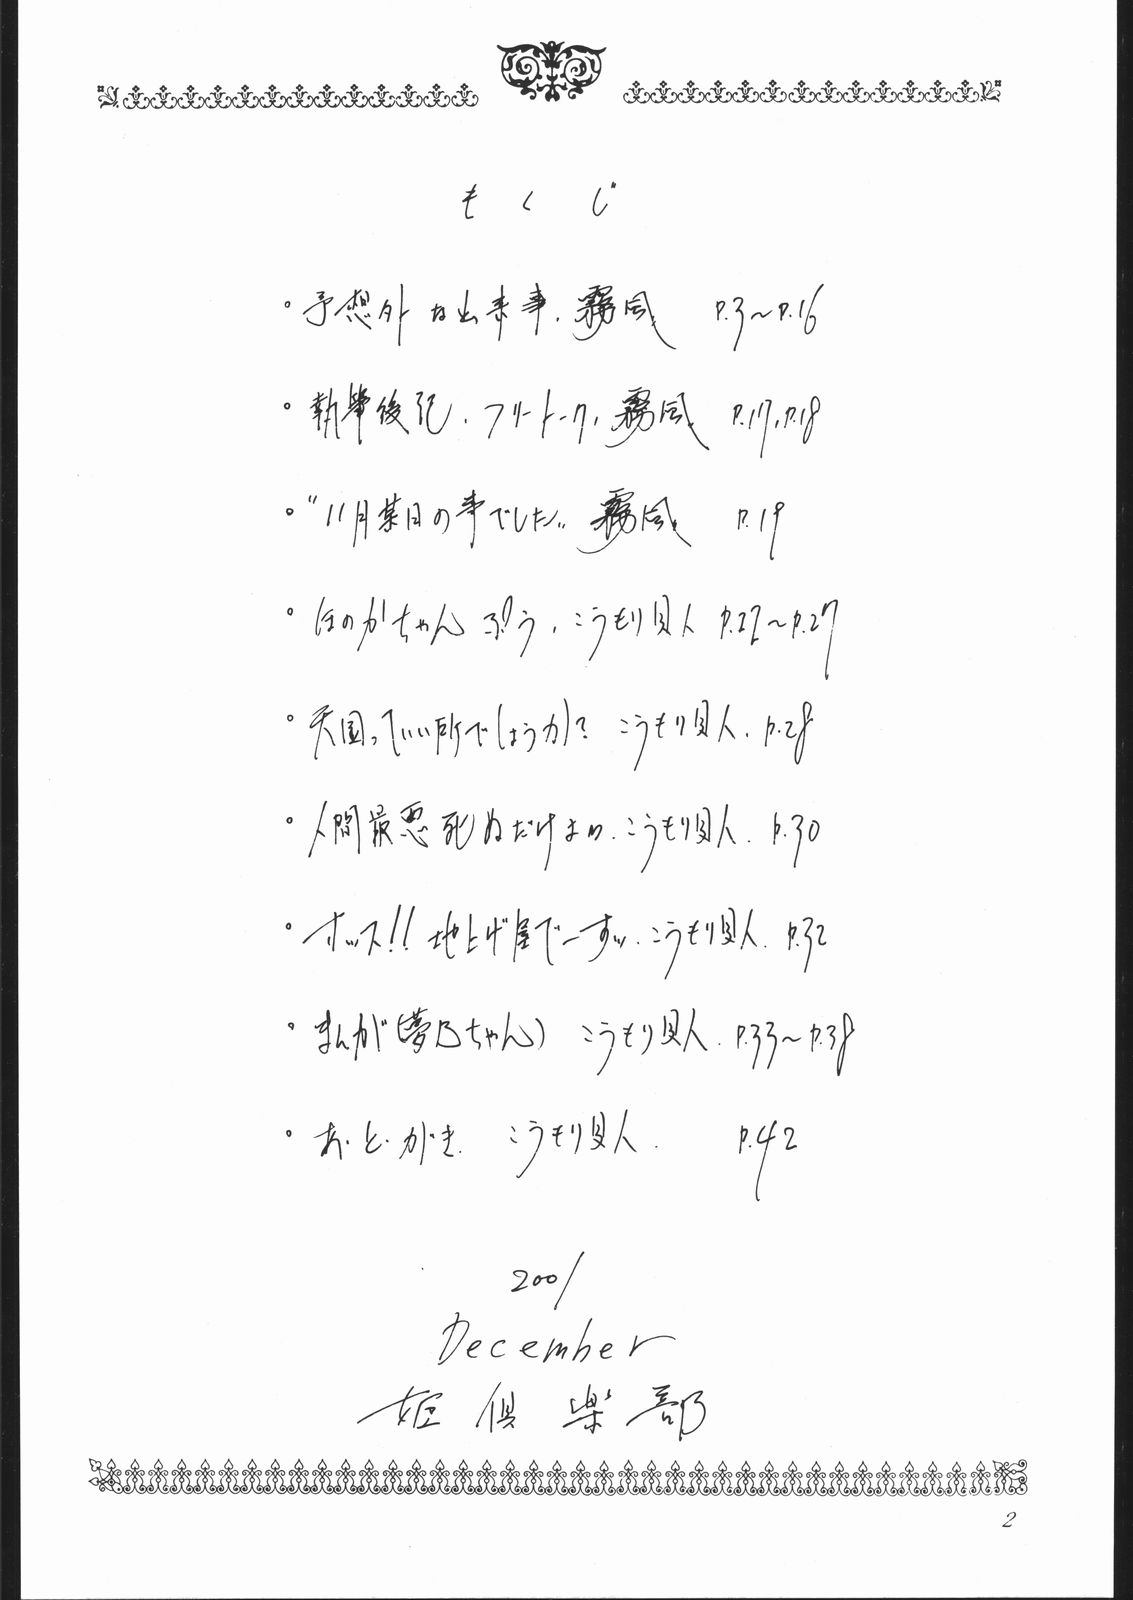 もくじ
・予想外な出来事. 霧風 P.3〜P.16
・執筆後記. フリートーク. 霧風 P.17, P.18
・"11月某日の事でした" 霧風 P.19
・ほのかちゃん ぷう. こうもり貝人 P.22〜P.27
・天国っていい所でしょうか? こうもり貝人. P.28
・人間最悪死ぬだけまわ. こうもり貝人. P.30
・オッス!! 地上げ屋でーすッ. こうもり貝人. P.32
・まんが(夢乃ちゃん) こうもり貝人. P.33〜P.38
・あ・と・がき. こうもり貝人. P.42
2001
December
姫倶楽部
2